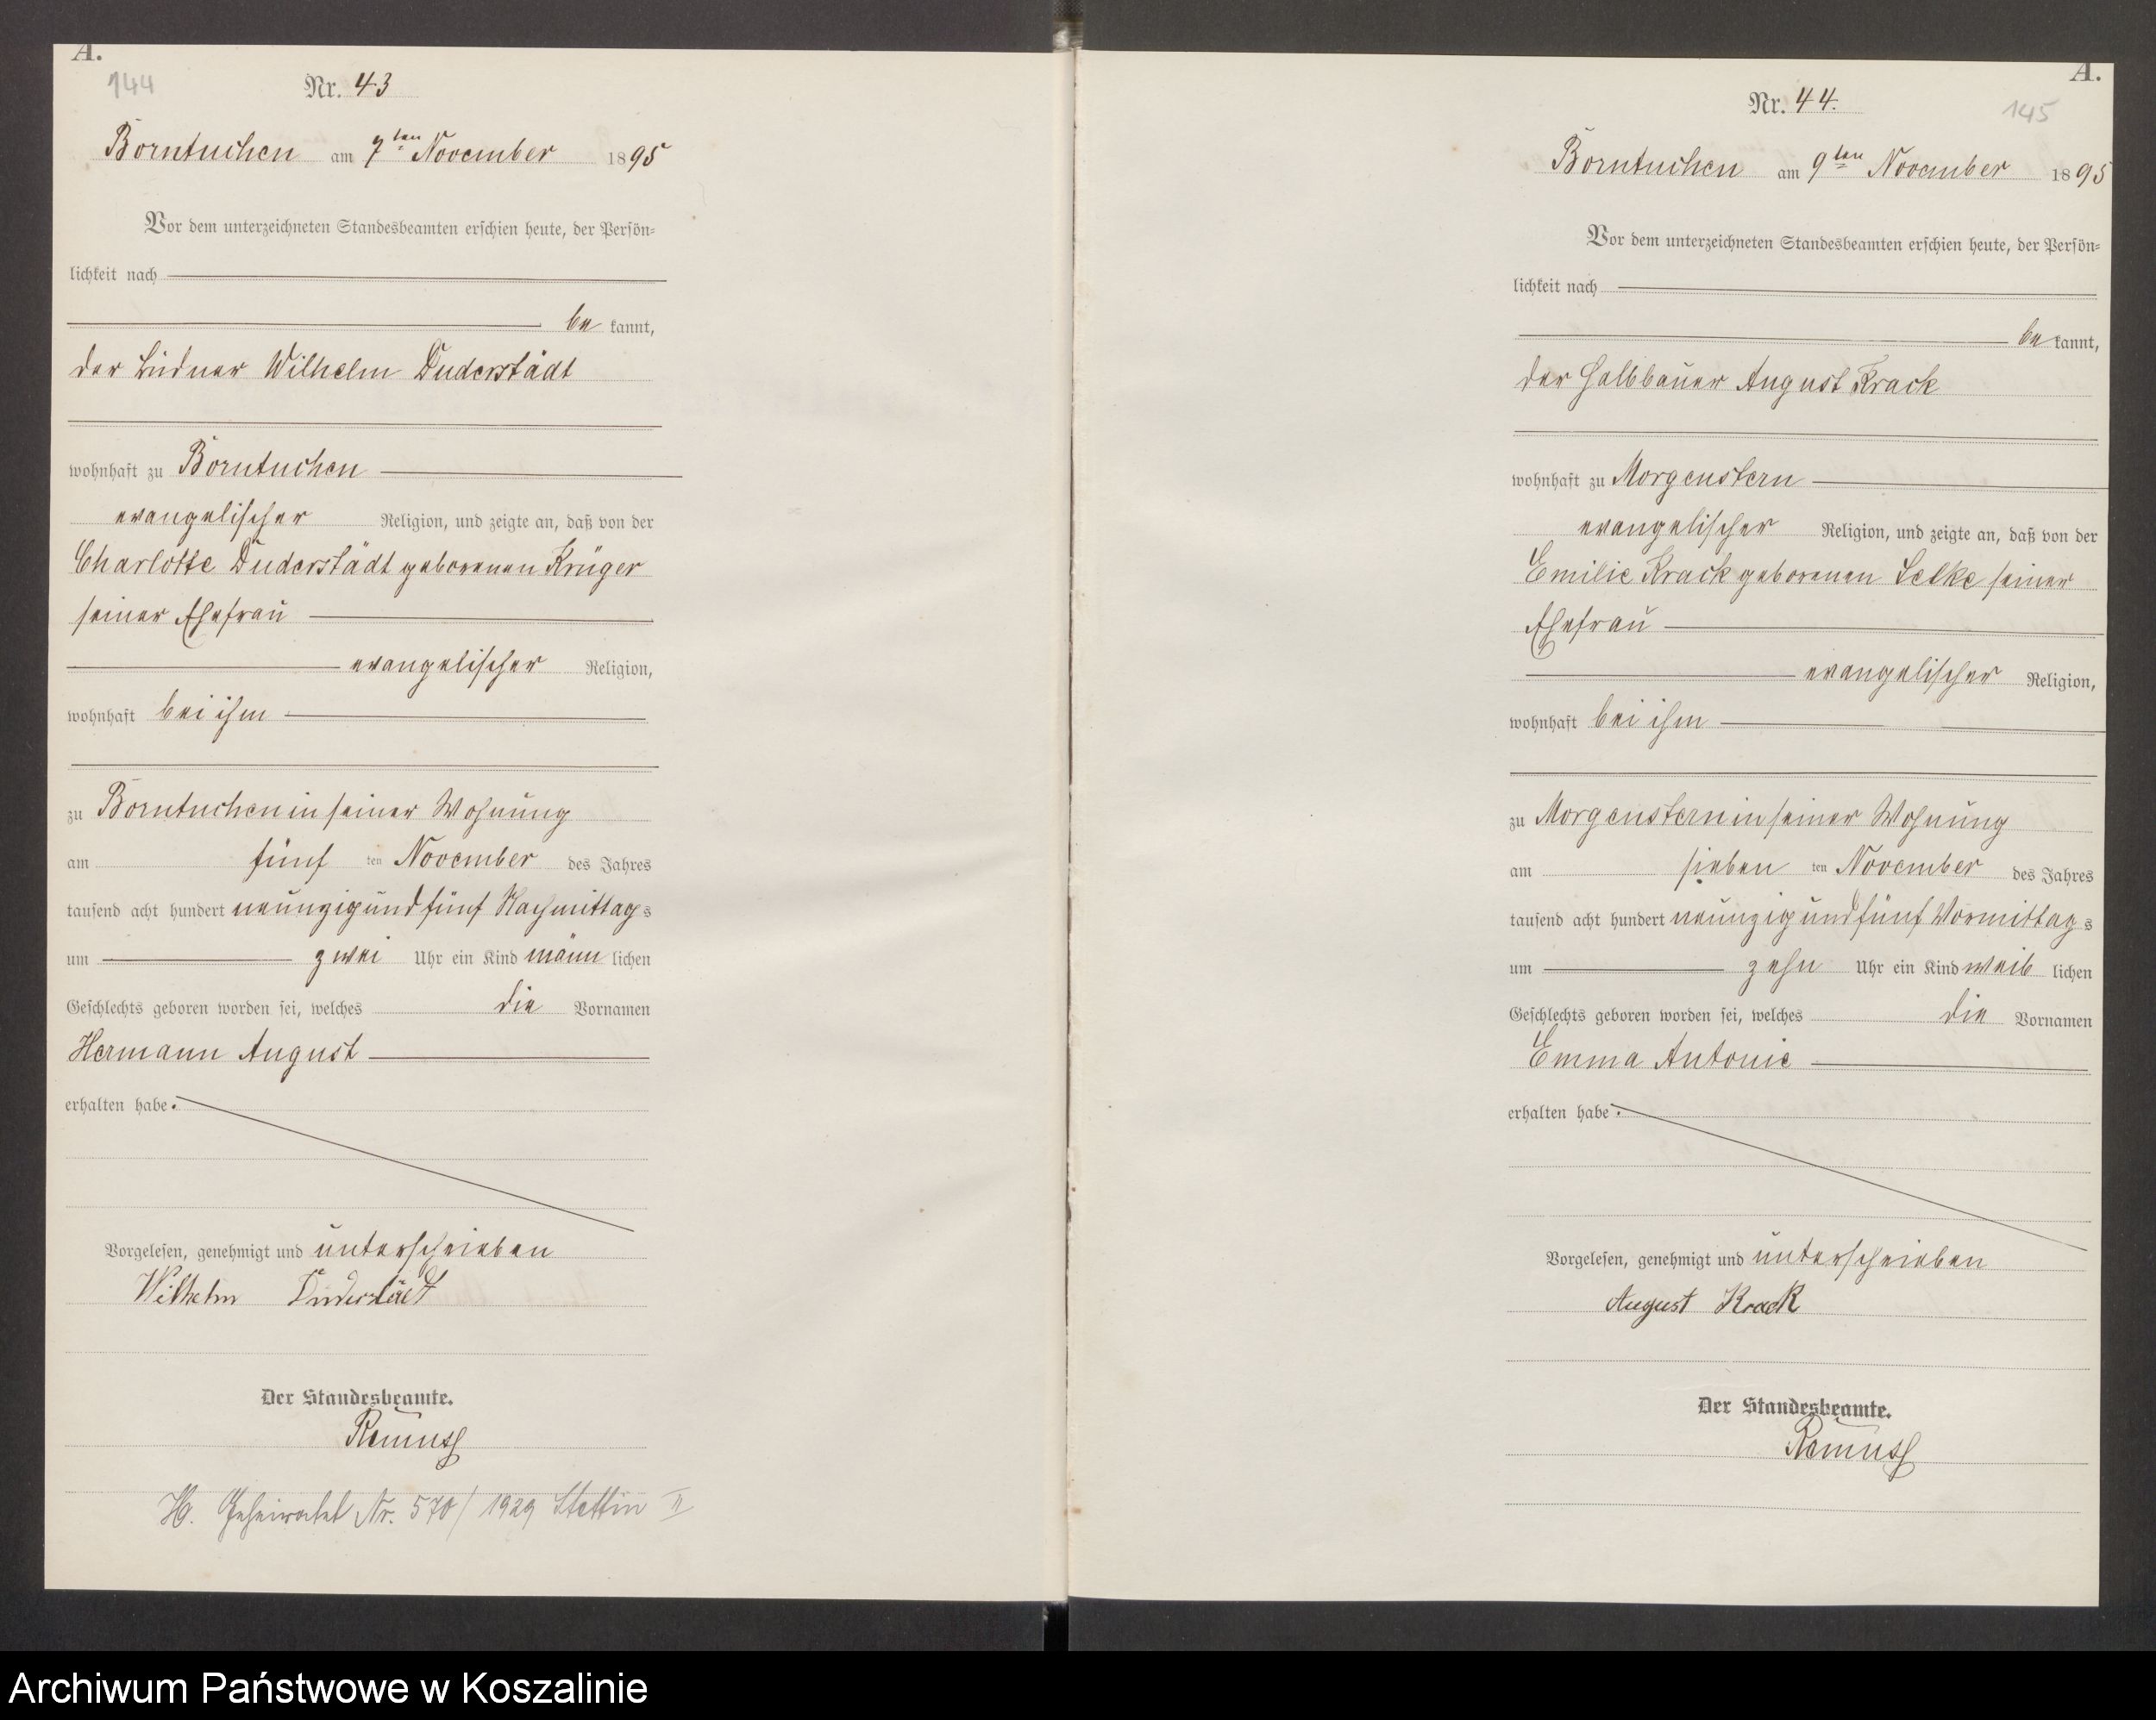 A.
144
Nr. 43
Borntuchen am 7ten November 1895
Vor dem unterzeichneten Standesbeamten erschien heute, der Persön-
lichkeit nach
be kannt,
der Büdner Wilhelm Duderstädt
wohnhaft zu Borntuchen
evangelischer Religion, und zeigte an, daß von der
Charlotte Duderstädt geborenen Krüger
seiner Ehefrau
evangelischer Religion,
wohnhaft bei ihm
zu Borntuchen in seiner Wohnung
am fünf ten November des Jahres
tausend acht hundert neunzig und fünf Nachmittag s
um zwei Uhr ein Kind männ lichen
Geschlechts geboren worden sei, welches die Vornamen
Hermann August
erhalten habe.
Vorgelesen, genehmigt und unterschrieben
Wilhelm Duderstädt
Der Standesbeamte.
Remus
Geheiratet Nr. 570/1929 Stettin II
A.
145
Nr. 44.
Borntuchen am 9ten November 1895
Vor dem unterzeichneten Standesbeamten erschien heute, der Persön-
lichkeit nach
be kannt,
der Halbbauer August Krack
wohnhaft zu Morgenstern
evangelischer Religion, und zeigte an, daß von der
Emilie Krack geborenen Selke seiner
Ehefrau
evangelischer Religion,
wohnhaft bei ihm
zu Morgenstern in seiner Wohnung
am sieben ten November des Jahres
tausend acht hundert neunzig und fünf Vormittag s
um zehn Uhr ein Kind weib lichen
Geschlechts geboren worden sei, welches die Vornamen
Emma Antonie
erhalten habe.
Vorgelesen, genehmigt und unterschrieben
August Krack
Der Standesbeamte.
Remus
Archiwum Państwowe w Koszalinie